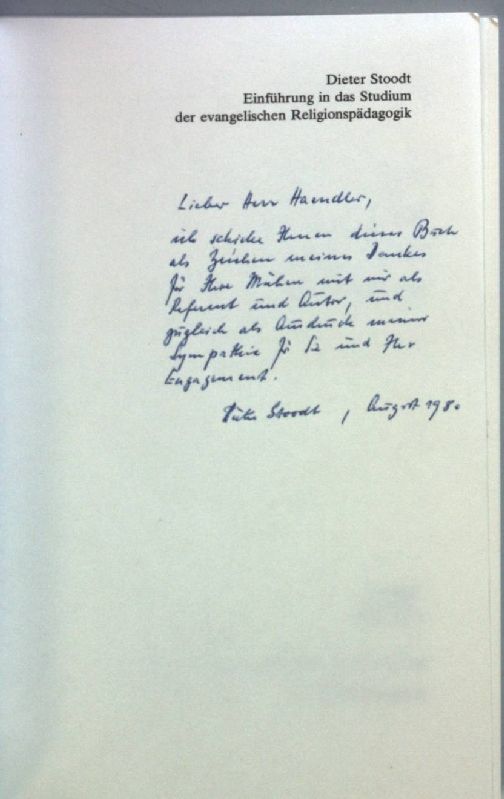 Dieter Stoodt
Einführung in das Studium
der evangelischen Religionspädagogik
Lieber Herr Haendler,
ich schicke Ihnen dieses Buch
als Zeichen meines Dankes
für Ihre Mühen mit mir als
Referent und Autor, und
zugleich als Ausdruck meiner
Sympathie für Sie und Ihr
Engagement.
Dieter Stoodt, August 1980